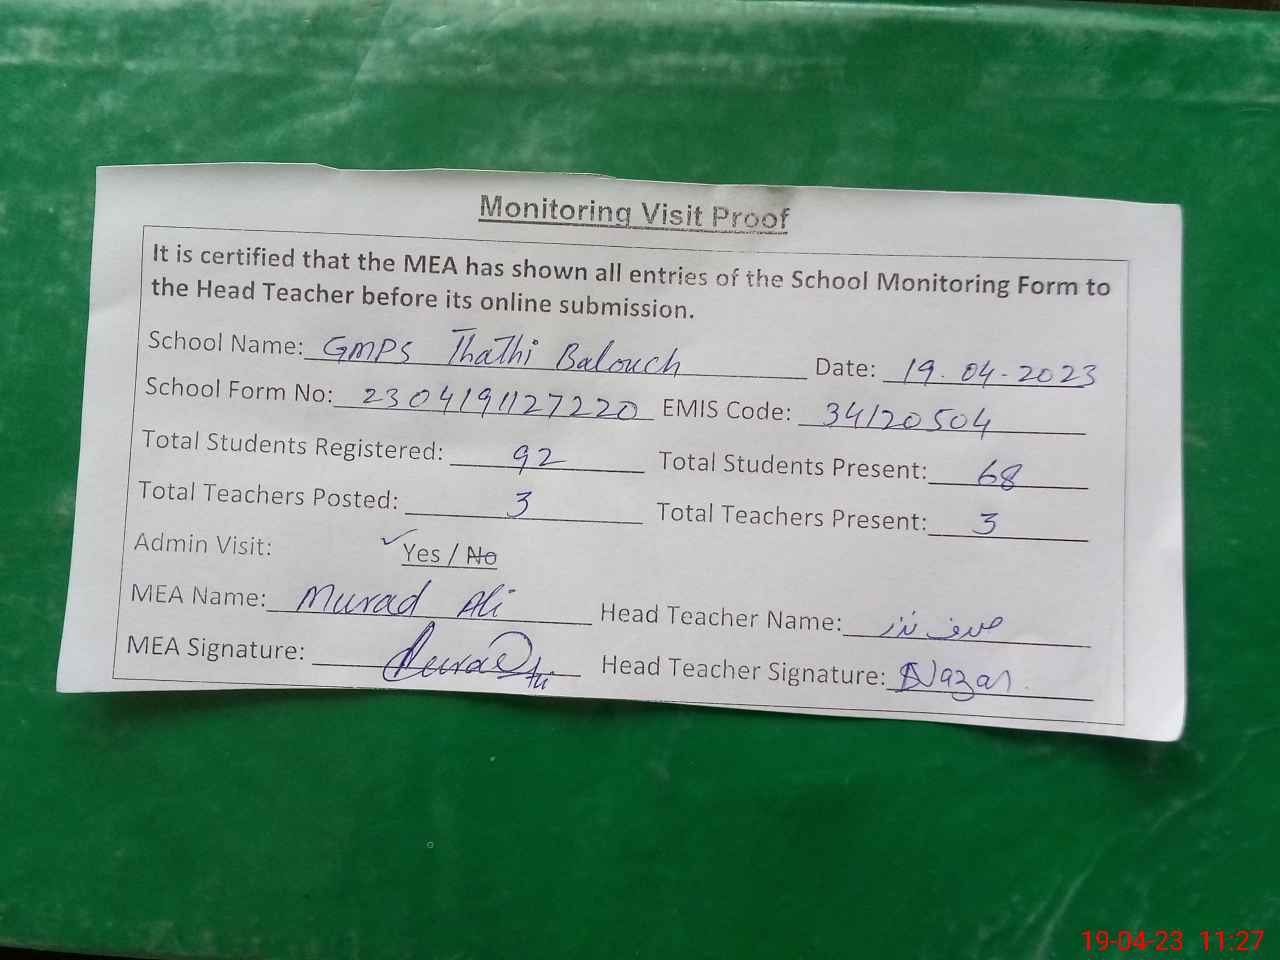 Monitoring Visit Proof
It is certified that the MEA has shown all entries of the School Monitoring Form to
the Head Teacher before its online submission.
School Name: GMPS Thathi Balouch Date: 19.04.2023
School Form No: 2304191127220 EMIS Code: 34120504
Total Students Registered: 92 Total Students Present: 68
Total Teachers Posted: 3 Total Teachers Present: 3
Admin Visit: Yes / No
MEA Name: Murad Ali Head Teacher Name:
MEA Signature: Murad Ali Head Teacher Signature: Nazar
19-04-23 11:27